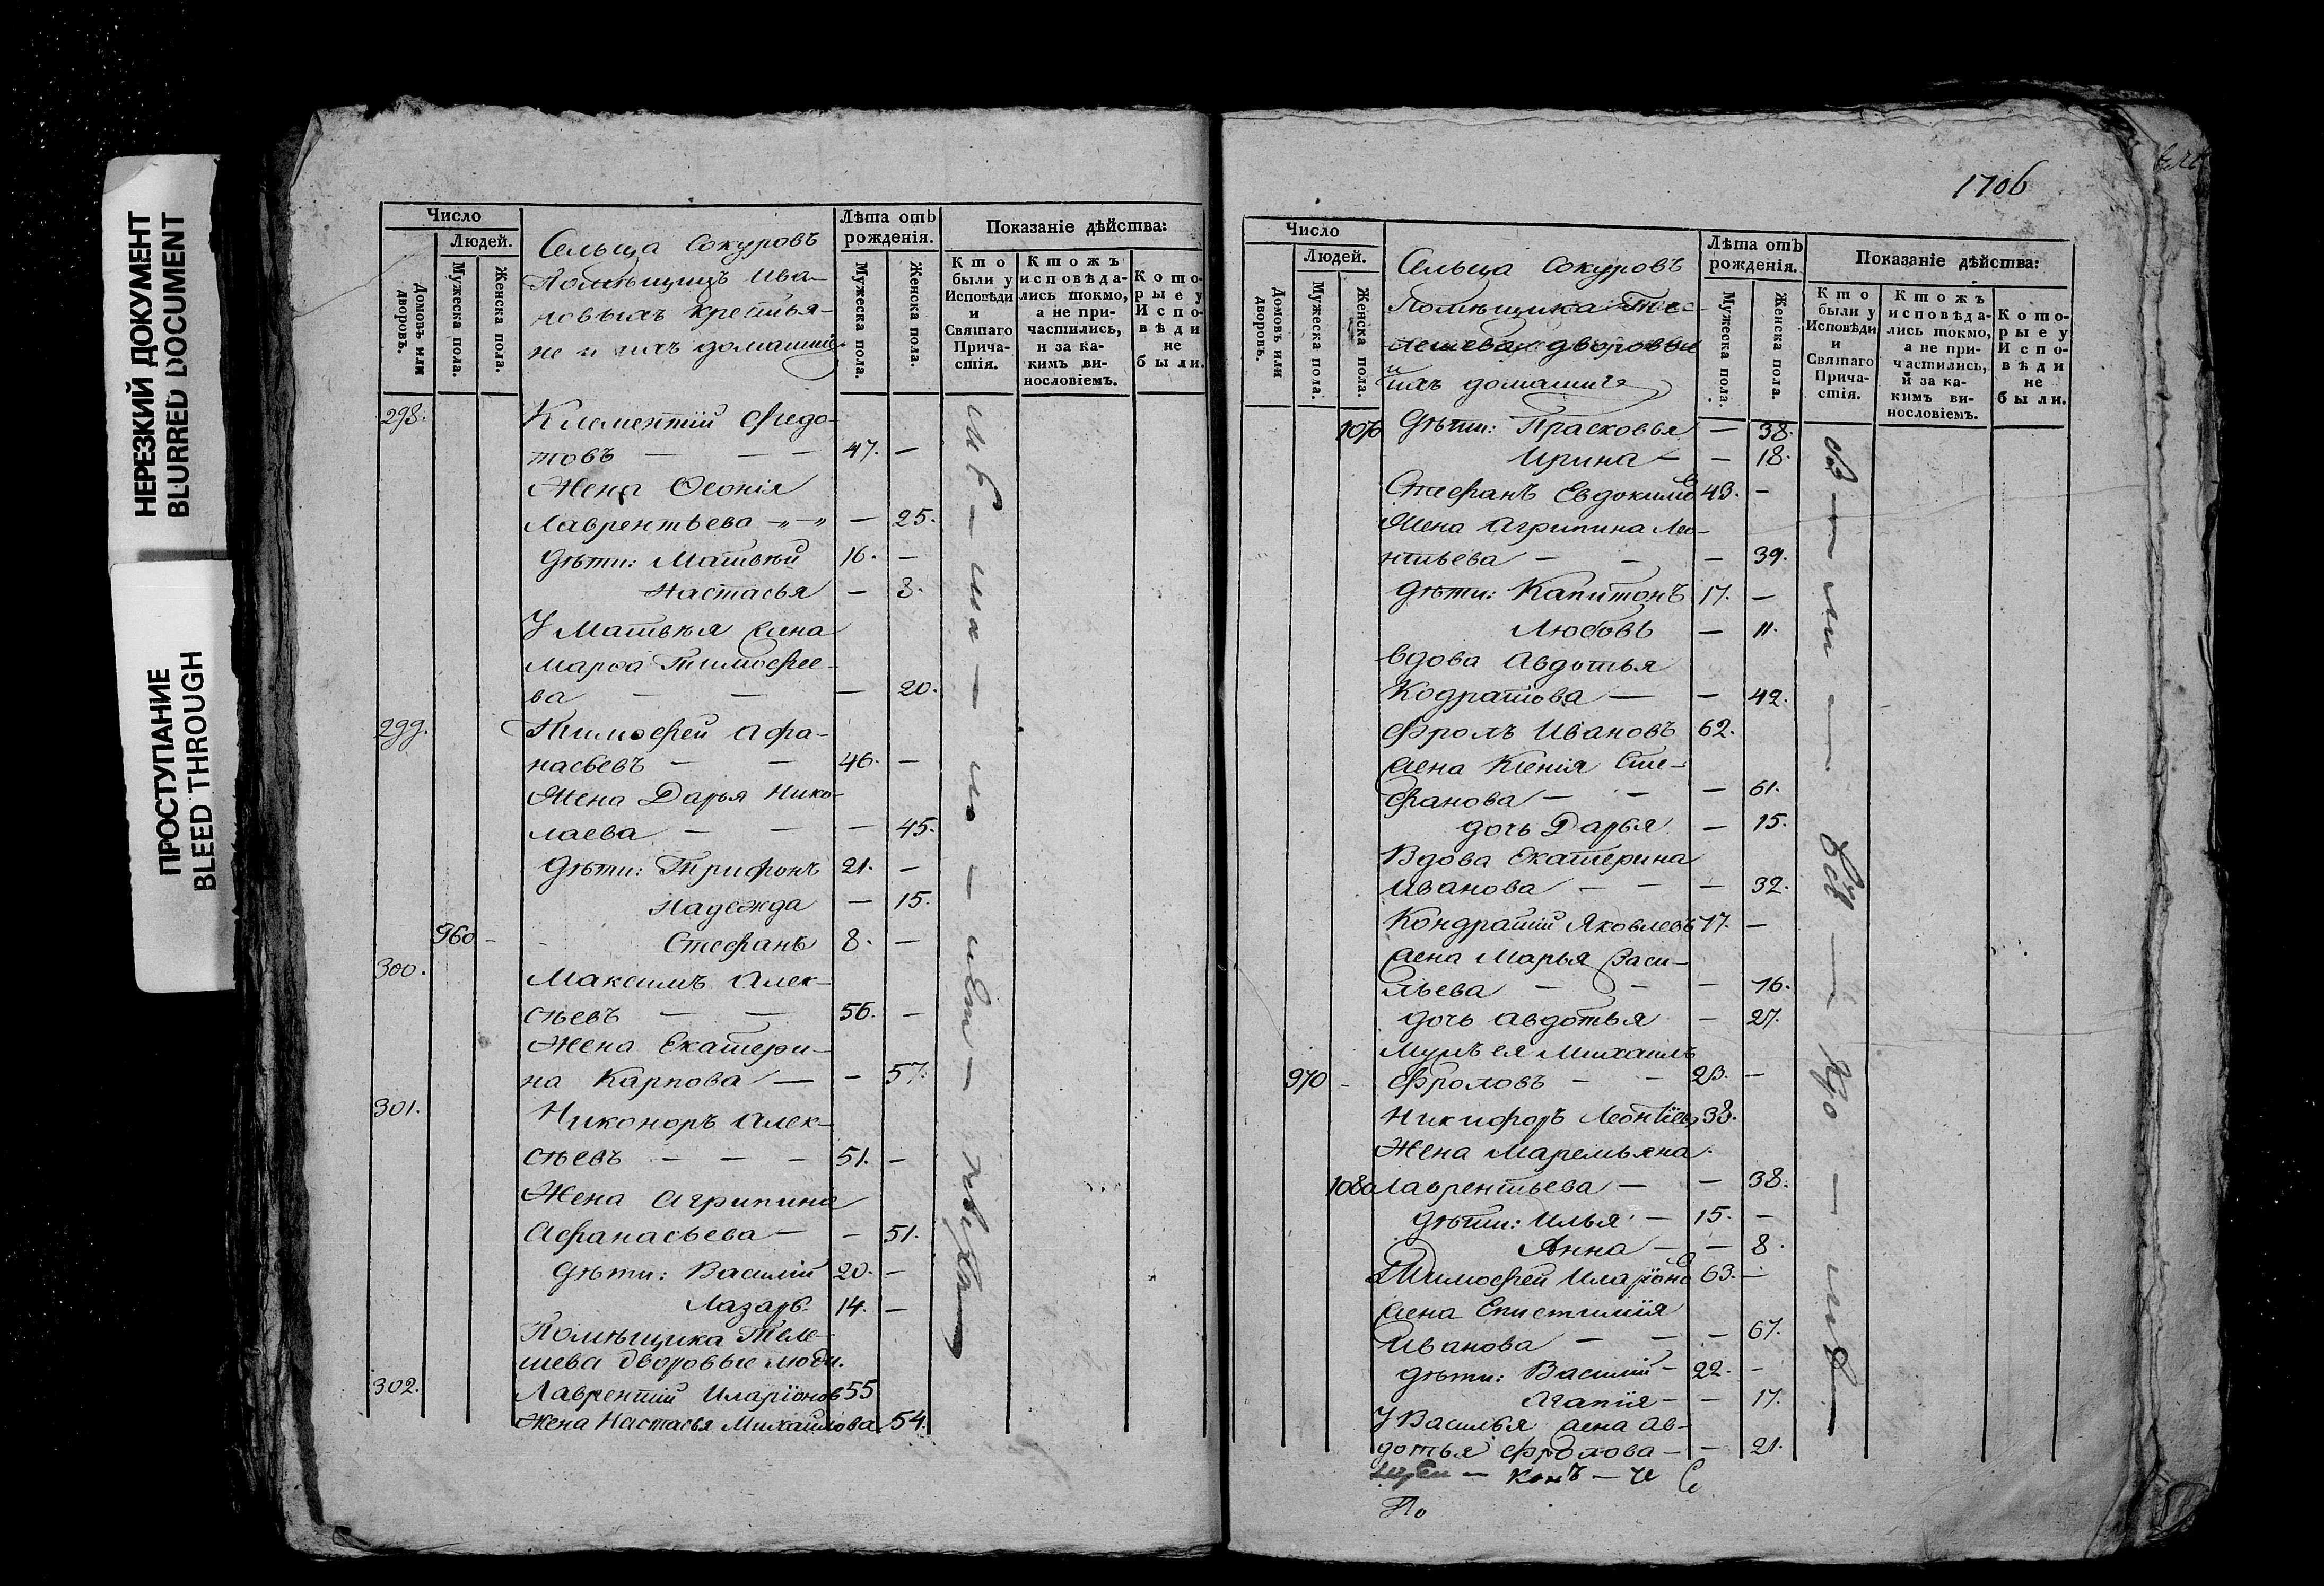 НЕРЕЗКИЙ ДОКУМЕНТ
BLURRED DOCUMENT
ПРОСТУПАНИЕ
BLEED THROUGH
Число
Людей.
Домовъ или дворовъ.
Мужеска пола.
Женска пола.
Сельца Сокуровъ
Помѣщицъ Ива-
новыхъ крестья-
не и ихъ домашніе
Лѣта отъ рожденія.
Мужеска пола.
Женска пола.
Показаніе дѣйства:
Кто были у Исповѣди и Святаго Прича-стія.
Ктожъ исповѣда-лись токмо, а не при-частились, и за ка-кимъ ви-нословіемъ.
Кото-рые у Испо-вѣди не были.
298.
Климентій Федо-
товъ — — — 47. —
Жена Ѳеонія
Лаврентьева — — 25.
Дѣти: Матвѣй 16. —
Настасья — 8.
У Матвѣя жена
Марѳа Тимофее-
ва — — — 20.
299.
Тимофей Афа-
насьевъ — — 46. —
Жена Дарья Нико-
лаева — — — 45.
Дѣти: Трифонъ 21. —
Надежда — 15.
960 — Стефанъ 8. —
300.
Максимъ Алек-
сѣевъ — — 56. —
Жена Екатери-
на Карпова — — 57.
301.
Никоноръ Алек-
сѣевъ — — — 51. —
Жена Агрипина
Афанасьева — — 51.
Дѣти: Василій 20. —
Лазарь 14. —
Помѣщика Теле-
шева дворовые люди.
302.
Лаврентій Иларіонов 55
Жена Настасья Михайлова 54.
1706
Число
Людей.
Домовъ или дворовъ.
Мужеска пола.
Женска пола.
Сельца Сокуровъ
Помѣщика Те-
лешева дворовые
и ихъ домашніе
Лѣта отъ рожденія.
Мужеска пола.
Женска пола.
Показаніе дѣйства:
Кто были у Исповѣди и Святаго Прича-стія.
Ктожъ исповѣда-лись токмо, а не при-частились, и за ка-кимъ ви-нословіемъ.
Кото-рые у Испо-вѣди не были.
1070 Дѣти: Прасковья — 38.
Ирина — — 18.
Стефанъ Евдокимов 43. —
Жена Агрипина Лео-
нтьева — — — 39.
Дѣти: Капитонъ 17. —
Любовь — 11.
Вдова Авдотья
Кодратова — — 42.
Фролъ Ивановъ 62.
жена Ксенія Сте-
фанова — — — 61.
дочь Дарья — 15.
Вдова Екатерина
Иванова — — — 32.
Кондратій Яковлевъ 77. —
жена Марья Васи-
льева — — — 76.
дочь Авдотья — 27.
мужъ ея Михаилъ
970 — Фроловъ — — 23. —
Никифоръ Леонтіев 38.
Жена Маремьяна
1080 Лаврентьева — — 38.
Дѣти: Илья — 15. —
Анна — — 8.
Тимофей Иларіонов 63. —
жена Епистимія
Иванова — — — 67.
Дѣти: Василій — 22. —
Агапія — — 17.
У Василья жена Ав-
дотья Фролова — — 21.
По